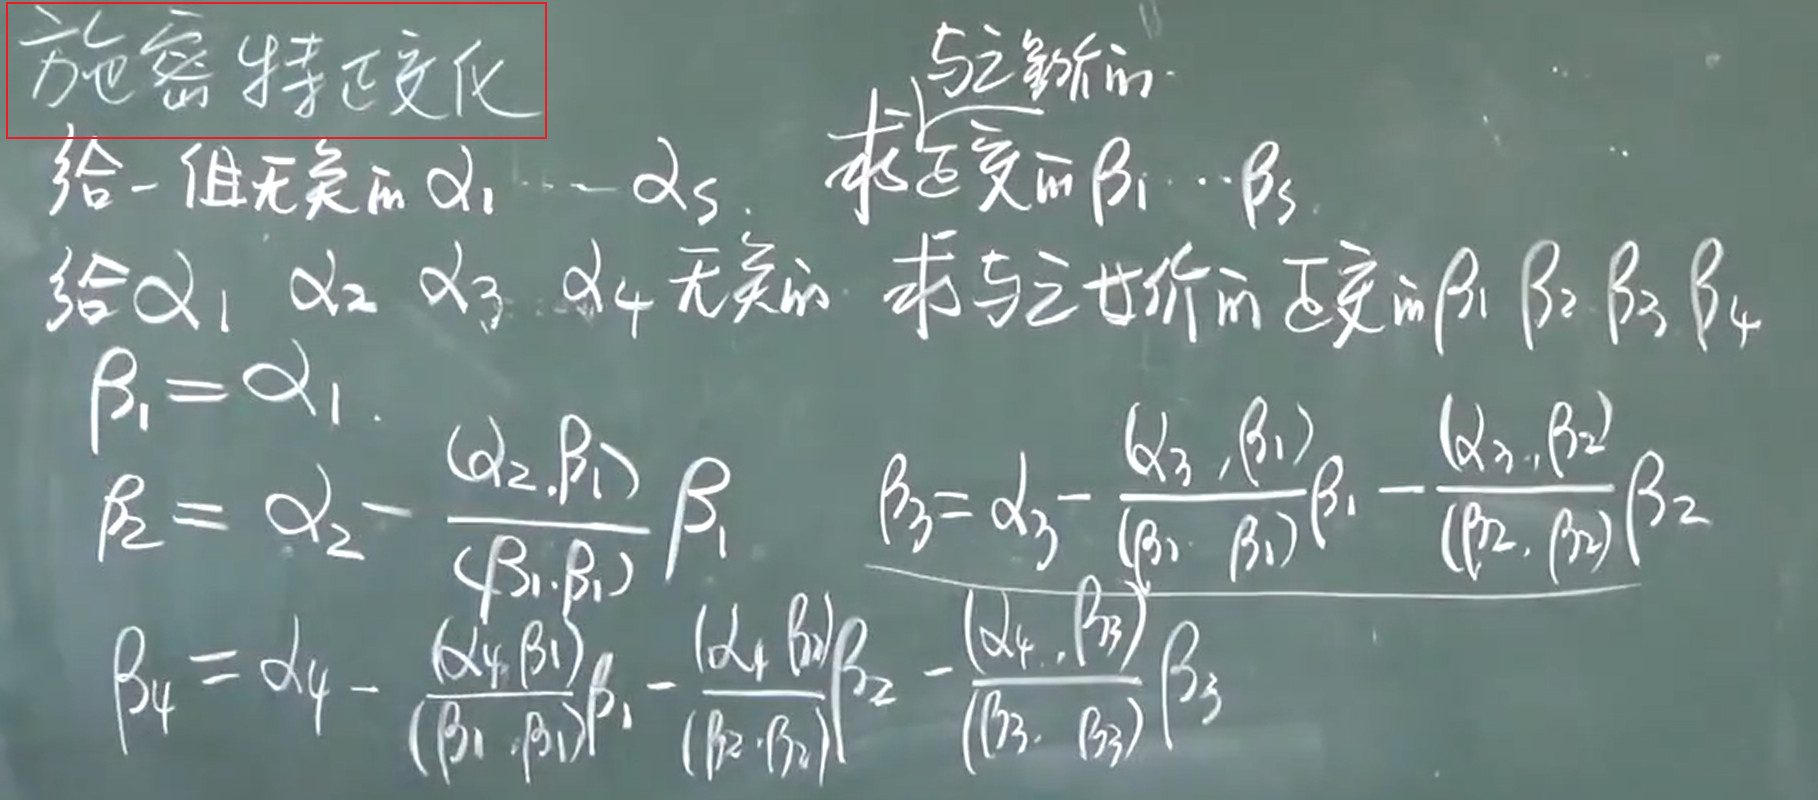 施密特正交化
与之等价的
给一组无关的 α₁ ··· αₛ. 求正交的 β₁ ··· βₛ.
给 α₁ α₂ α₃ α₄ 无关的 求与之等价的正交的 β₁ β₂ β₃ β₄
β₁ = α₁.
β₂ = α₂ - (α₂,β₁)/(β₁,β₁) β₁ β₃ = α₃ - (α₃,β₁)/(β₁,β₁) β₁ - (α₃,β₂)/(β₂,β₂) β₂
β₄ = α₄ - (α₄,β₁)/(β₁,β₁) β₁ - (α₄,β₂)/(β₂,β₂) β₂ - (α₄,β₃)/(β₃,β₃) β₃